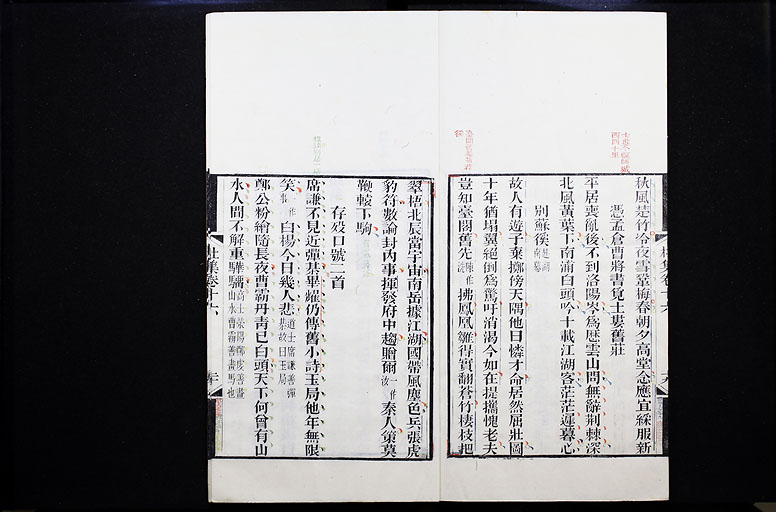 秋風楚竹冷夜雪鞏梅春朝夕高堂念應宜綵服新
憑孟倉曹將書覓土婁舊莊
平居喪亂後不到洛陽岑為歷雲山問無辭荊棘深
北風黃葉下南浦白頭吟十載江湖客茫茫遲暮心
別蘇徯
故人有遊子棄擲傍天隅他日憐才命居然屈壯圖
十年猶塌翼絕倒為驚吁消渴今如在提攜愧老夫
豈知臺閣舊先拂鳳凰雛得實翻蒼竹棲枝把
翠梧北辰當宇宙南岳據江湖國帶風塵色兵張虎
豹符數論封內事揮發府中趨贈爾一作汝秦人策莫
鞭轅下駒
存歿口號二首
席謙不見近彈棊畢曜仍傳舊小詩玉局他年無限
笑一作事白楊今日幾人悲道士席謙善彈棊故曰玉局
鄭公粉繪隨長夜曹霸丹青已白頭天下何曾有山
水人間不解重驊騮高士滎陽鄭虔善畫山水曹霸善畫馬也
杜集卷十六